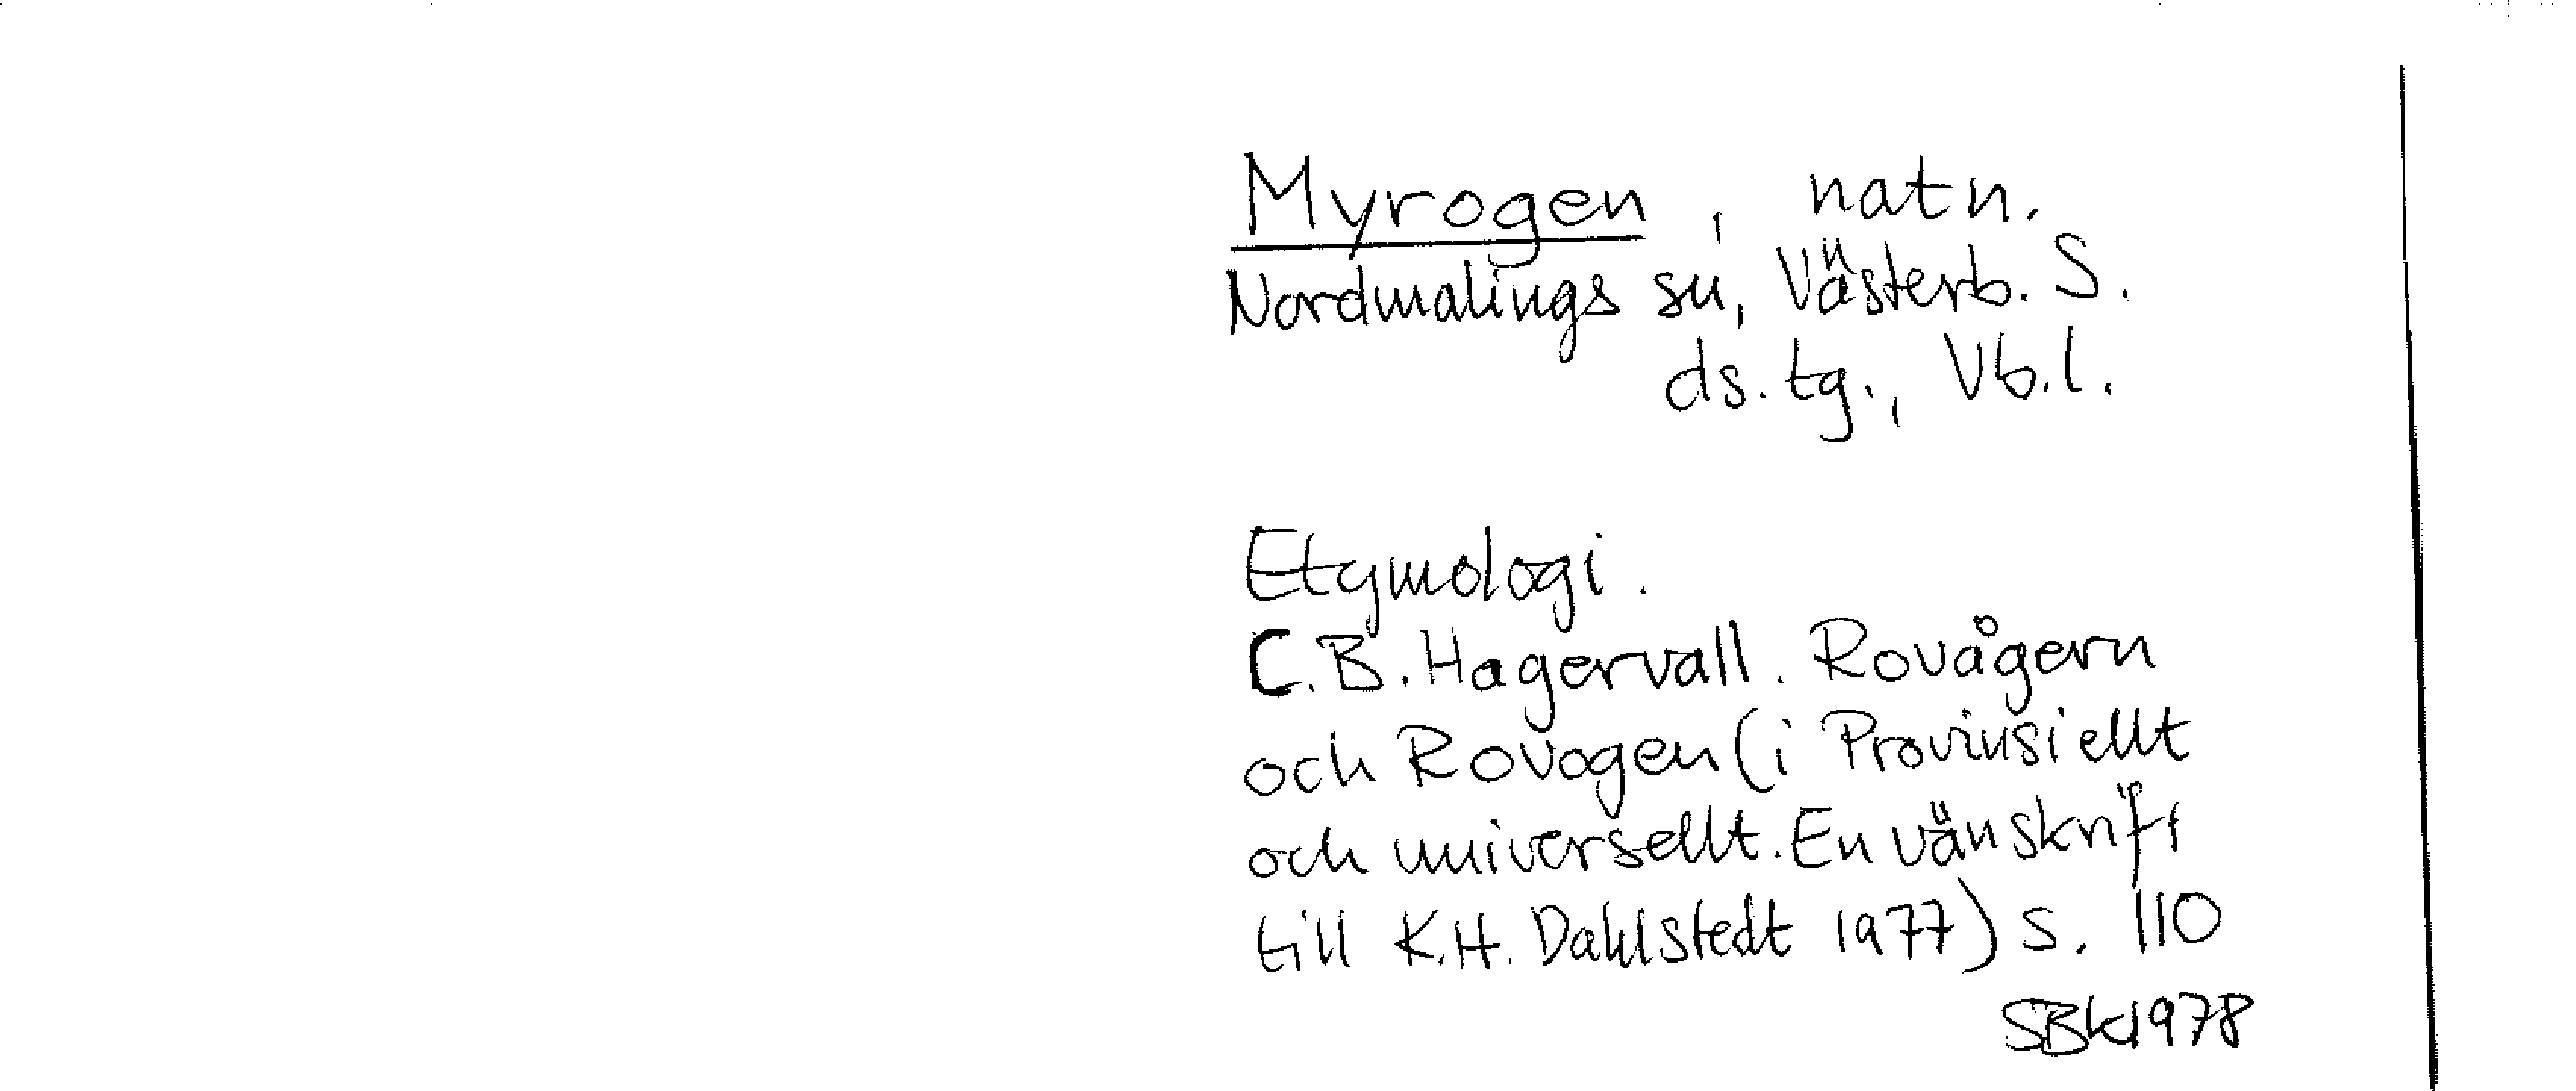 Myrogen, natn.
Nordmalings sn, Västerb. S.
ds. tg., Vb. l.
Etymologi.
C.B. Hagervall. Rovågern
och Rovogen (i Provinsiellt
och universellt. En vänskrift
till K.H. Dahlstedt 1977) s. 110
SBk 1978